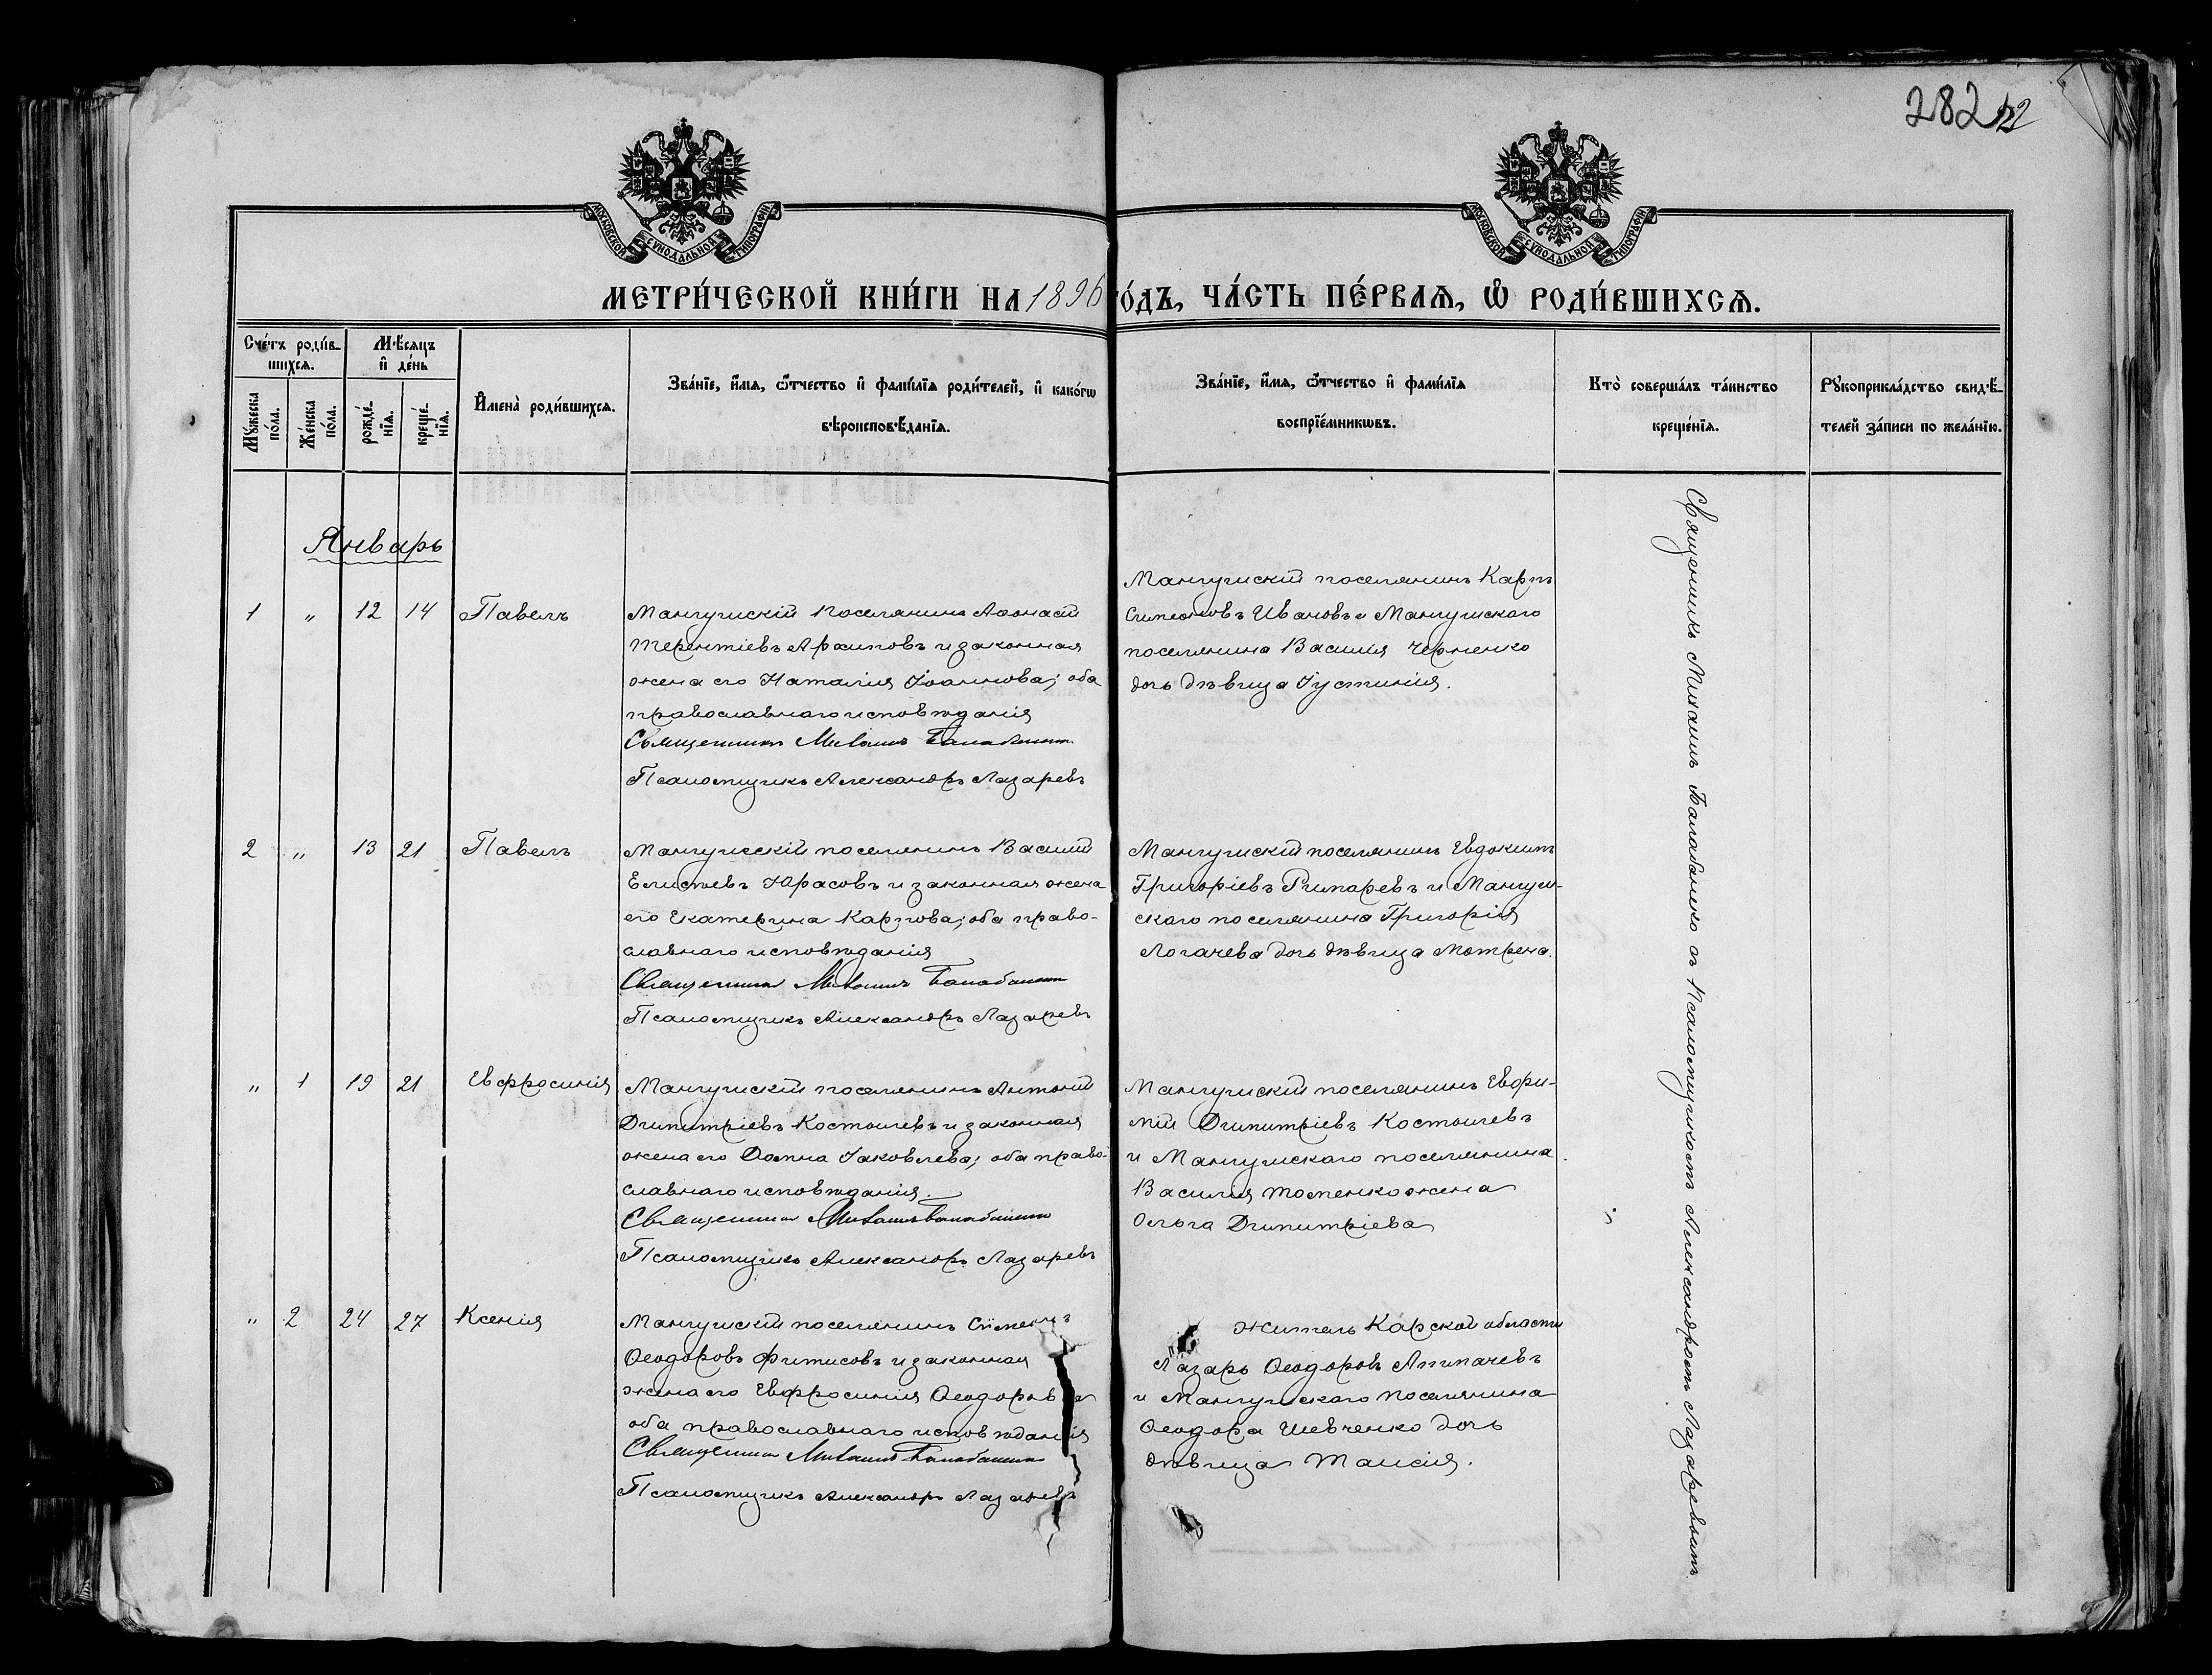 282
МОСКОВСКОЙ СУНОДАЛЬНОЙ ТИПОГРАФІИ
МОСКОВСКОЙ СУНОДАЛЬНОЙ ТИПОГРАФІИ
МЕТРИ́ЧЕСКОЙ КНИ́ГИ НА 1896 ГО́ДЪ, ЧА́СТЬ ПЕ́РВАѦ, Ѽ РОДИ́ВШИХСѦ.
Сче́тъ роди́в-
шихсѧ.
Мѣ́сяцъ
и҆ де́нь
Мꙋ́жеска
по́ла.
Же́нска
по́ла.
рожде́-
нїѧ.
креще́-
нїѧ.
И҆мена̀ роди́вшихсѧ.
Зва́нїе, и҆́мѧ, ѻ҆́тчество и҆ фами́лїѧ роди́телей, и҆ како́гѡ
вѣроисповѣ́данїѧ.
Зва́нїе, и҆́мѧ, ѻ҆́тчество и҆ фами́лїѧ
воспрїе́мникѡвъ.
Кто̀ соверша́лъ та́инство
креще́нїѧ.
Рꙋкоприкла́дство свидѣ́-
телей за́писи по жела́нїю.
Январь
1 " 12 14 Павелъ
Мангушскій поселянинъ Аѳонасій
Терентіевъ Архиповъ и законная
жена его Наталія Іоаннова; оба
православнаго исповѣданія
Священникъ Михаилъ Балабаненко
Псаломщикъ Александръ Лазаревъ
Мангушскій поселянинъ Карпъ
Симеоновъ Ивановъ и Мангушскаго
поселянина Василія Черненко
дочь дѣвица Іустинія.
2 " 13 21 Павелъ
Мангушскій поселянинъ Василій
Елисѣевъ Юрасовъ и законная жена
его Екатерина Карпова; оба право-
славнаго исповѣданія
Священникъ Михаилъ Балабаненко
Псаломщикъ Александръ Лазаревъ
Мангушскій поселянинъ Евдокимъ
Григоріевъ Римаревъ и Мангуш-
скаго поселянина Григорія
Логачева дочь дѣвица Мотрена.
" 1 19 21 Евфросинія
Мангушскій поселянинъ Антоній
Димитріевъ Костылевъ и законная
жена его Домна Іаковлева; оба право-
славнаго исповѣданія.
Священникъ Михаилъ Балабаненко
Псаломщикъ Александръ Лазаревъ
Мангушскій поселянинъ Евфи-
мій Димитріевъ Костылевъ
и Мангушскаго поселянина
Василія Томенко жена
Ольга Димитріева
" 2 24 27 Ксенія
Мангушскій поселянинъ Сѵмеонъ
Ѳеодоровъ Фитисовъ и законная
жена его Евфросинія Ѳеодорова
оба православнаго исповѣданія
Священникъ Михаилъ Балабаненко
Псаломщикъ Александръ Лазаревъ
Житель Карской области
Лазарь Ѳеодоровъ Лимачевъ
и Мангушскаго поселянина
Ѳеодора Шевченко дочь
дѣвица Таисія.
Священникъ Михаилъ Балабаненко съ Псаломщикомъ Александромъ Лазаревымъ